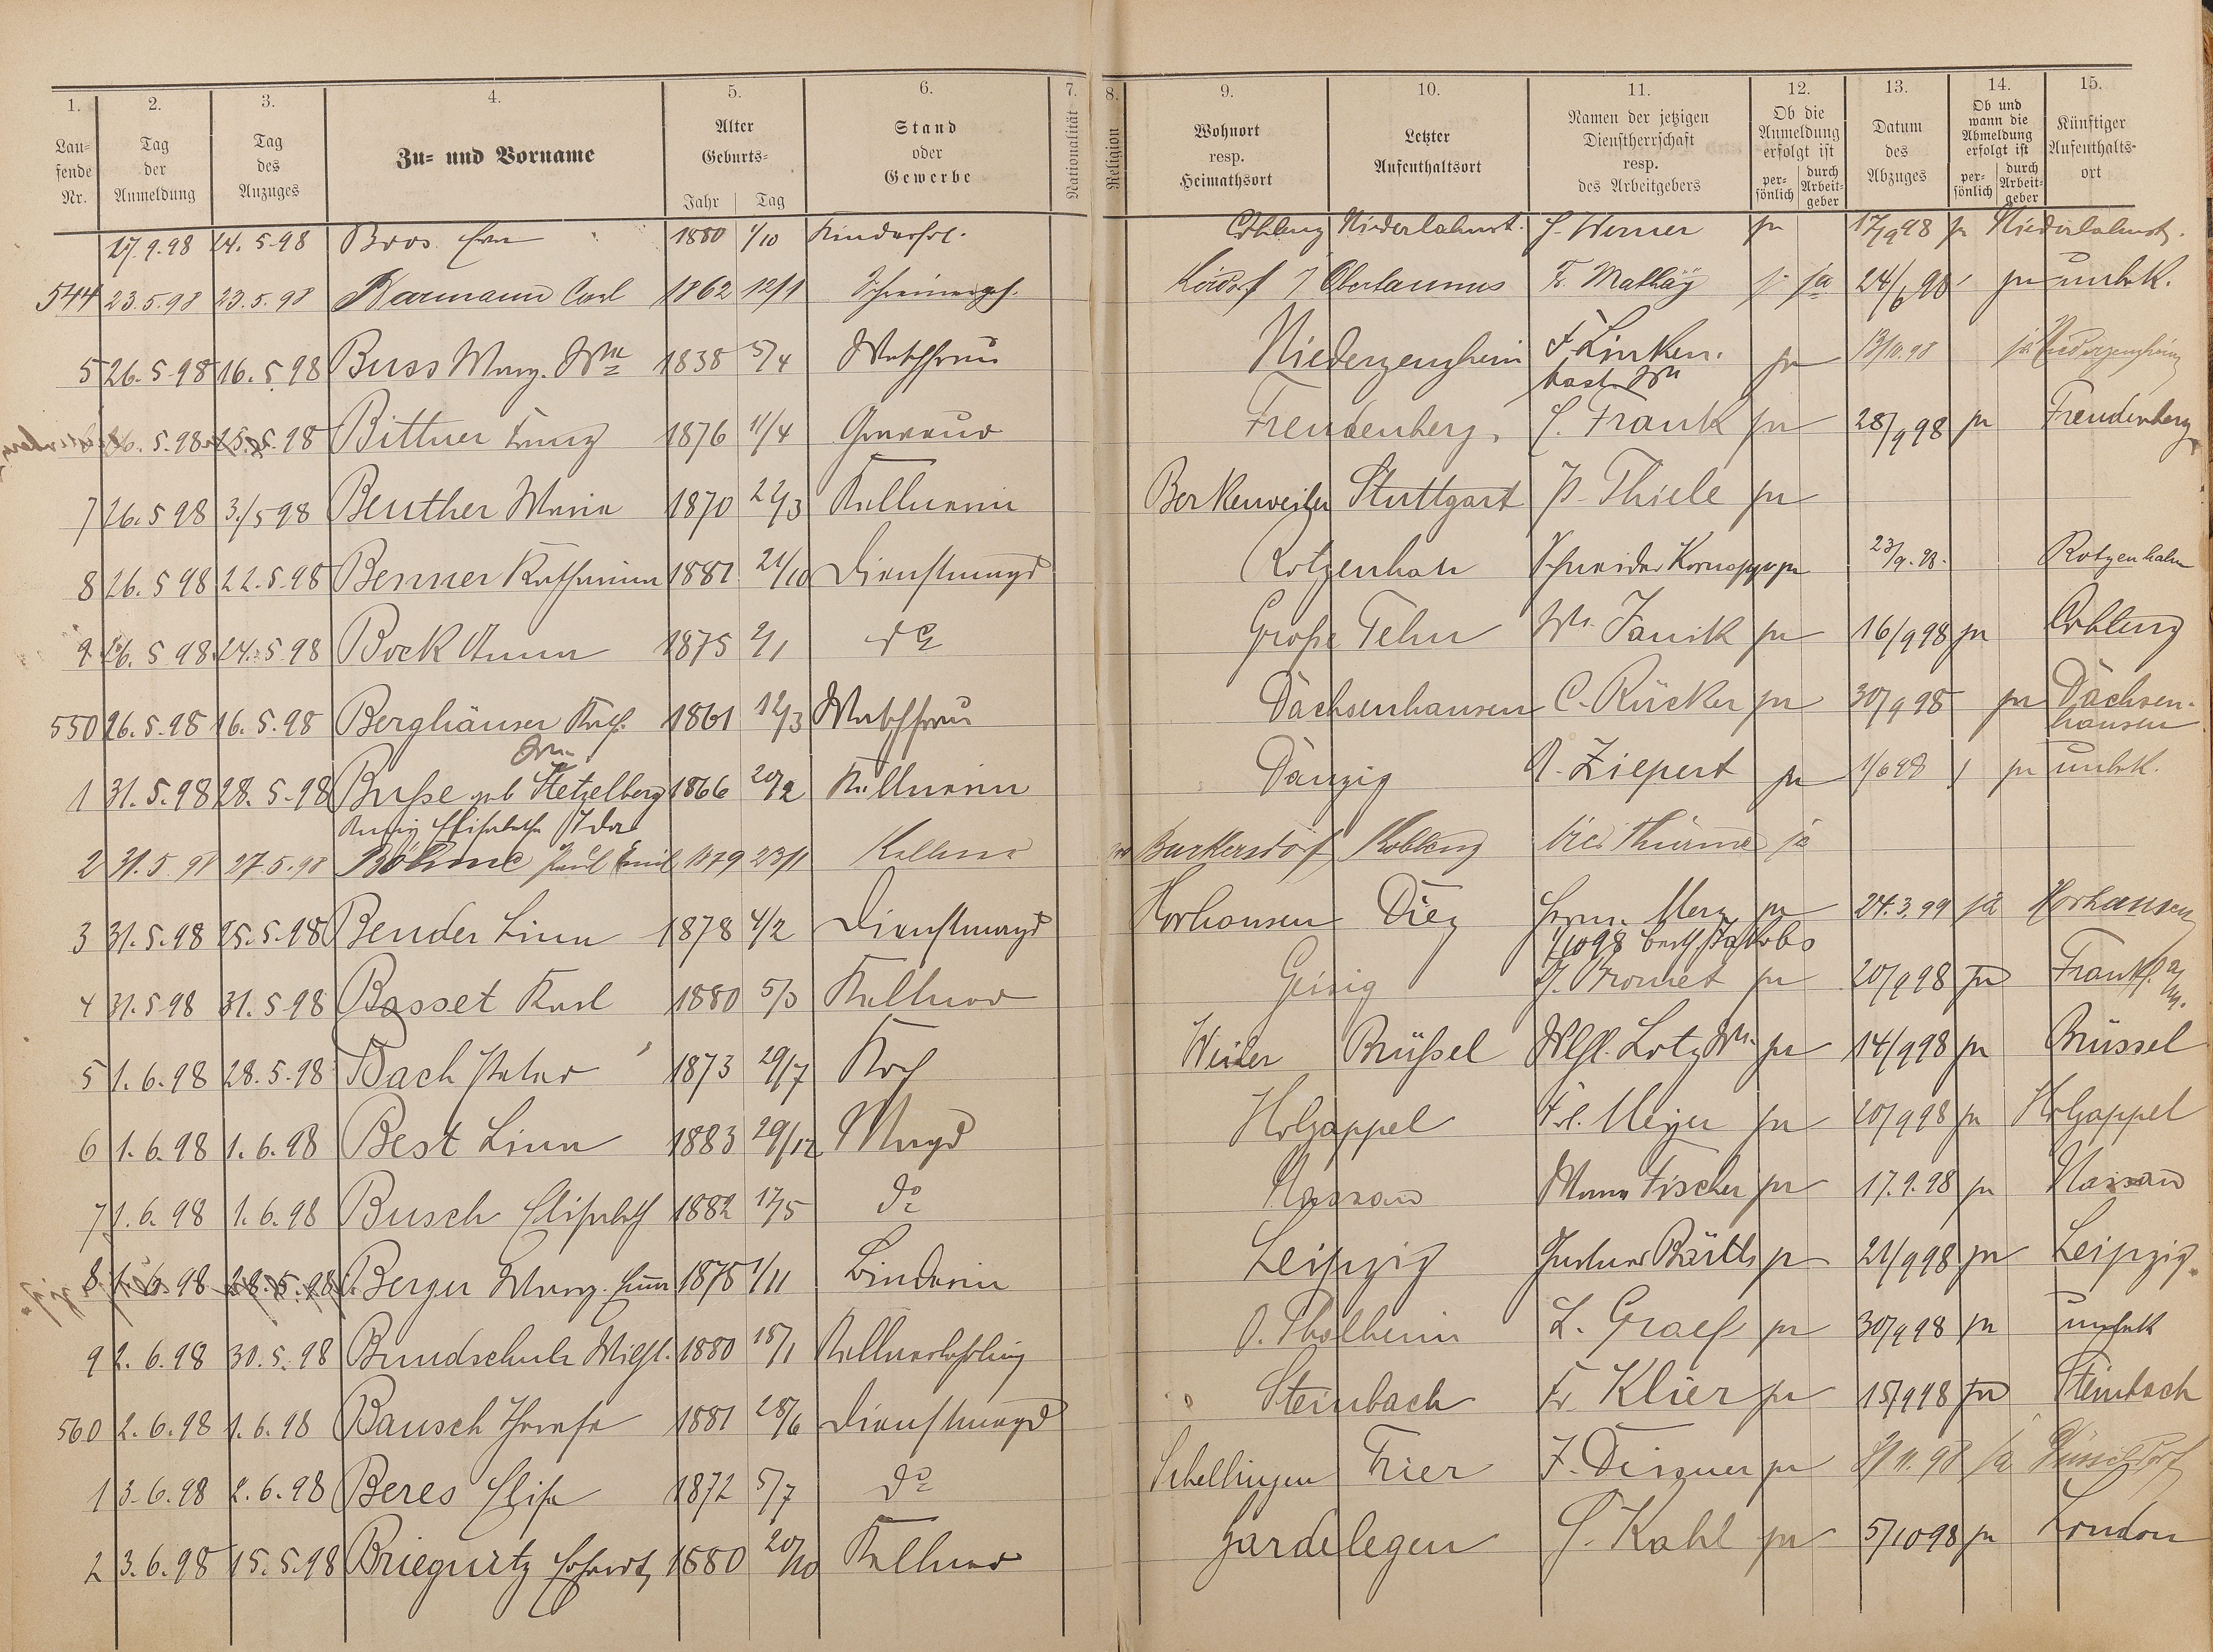 1. 2. 3. 4. 5. 6. 7. 8. 9. 10. 11. 12. 13. 14. 15.
Lau- fende Nr. Tag der Anmeldung Tag des Anzuges Zu- und Vorname Alter Geburts- Jahr Tag Stand oder Gewerbe Nationalität Religion Wohnort resp. Heimathsort Letzter Aufenthaltsort Namen der jetzigen Dienstherrschaft resp. des Arbeitgebers Ob die Anmeldung erfolgt ist per- sönlich durch Arbeit- geber Datum des Abzuges Ob und wann die Abmeldung erfolgt ist per- sönlich durch Arbeit- geber Künftiger Aufenthalts- ort
17.9.98 24.5.98 Bros 1880 1/10 Coblenz Niederlahnst. Werner ja 17/9 98 ja Niederlahnst.
544 23.5.98 23.5.98 Karmann Carl 1862 12/1 Schreinergeh. Oberlaunus F. Mathäy ja 24/6 98 ja unbek.
5 26.5.98 16.5.98 Buss Marg. Wwe 1838 5/4 Waschfrau Niederzeuzheim F. Linken- bach Ww ja 13/10.98 ja Niederzeuzheim
26.5.98 25.5.98 Bittner Franz 1876 11/4 Graveur Freudenberg C. Frank ja 28/9 98 ja Freudenberg
7 26.5 98 3./5 98 Beuther Maria 1870 22/3 Kellnerin Berkenweiler Stuttgart P. Thiele ja
8 26.5 98 22.5.98 Benner Katharina 1881 21/10 Dienstmagd Rotzenhan Schneider ja 23/9.98. Rotzenhahn
9 26.5 98 24.5 98 Bock Anna 1875 2/1 do Große Fehn Ww. Janik ja 16/9 98 ja Coblenz
550 26.5.98 16.5.98 Berghäuser Kath. 1861 12/3 Waschfrau Dachsenhausen C. Rücker ja 30/9 98 ja Dachsen- hausen
1 31.5.98 28.5.98 Buße geb Hetzelberg 1866 20/2 Kellnerin Danzig A. Ziepert ja 1/6 98 ja unbek.
Elisabetha Ida
2 31.5.98 27.5.98 Böhme Paul Emil 1879 23/1 Kellner Burkersdorf Koblenz vier Thürme ja
3 31.5.98 25.5.98 Bender Lina 1878 4/2 Dienstmagd Horhausen Diez Herm. Merz ja 24.3.99 ja Horhausen
1/10 98 Jakobs
4 31.5 98 31.5 98 Basset Karl 1880 5/3 Kellner Geisig ja 20/9 98 ja Frankf. a/M.
5 1.6.98 28.5.98 Bach Peter 1873 29/7 Koch Weiler Brüßel Wilh. Lotz Ww. ja 14/9 98 ja Brüssel
6 1.6.98 1.6.98 Best Lina 1883 29/12 Magd Holzappel Fr. Meyer ja 20/9 98 ja Holzappel
7 1.6.98 1.6.98 Busch Elisabeth 1882 17/5 do Nassau Fischer ja 17.9.98 ja Nassau
8 1.6.98 28.5.98 Berger Marg. Emma 1875 1/11 Binderin Leipzig Gustav ja 21/9 98 ja Leipzig
9 2.6.98 30.5.98 Bundschuh Wilh. 1880 15/1 Kellnerlehrling O. Tholheim L. Graef ja 30/9 98 ja unbek
560 2.6.98 1.6.98 Bausch Theresa 1881 28/6 Dienstmagd Steinbach Fr. Klier ja 15/9 98 ja Steinbach
1 3.6.98 2.6.98 Beres Elise 1872 5/7 do Schellingen Trier J. Disquer ja ja Düsseldorf
2 3.6.98 15.5.98 Briegnitz 1880 20/10 Kellner Gardelegen C. Kahl ja 5/10 98 ja London